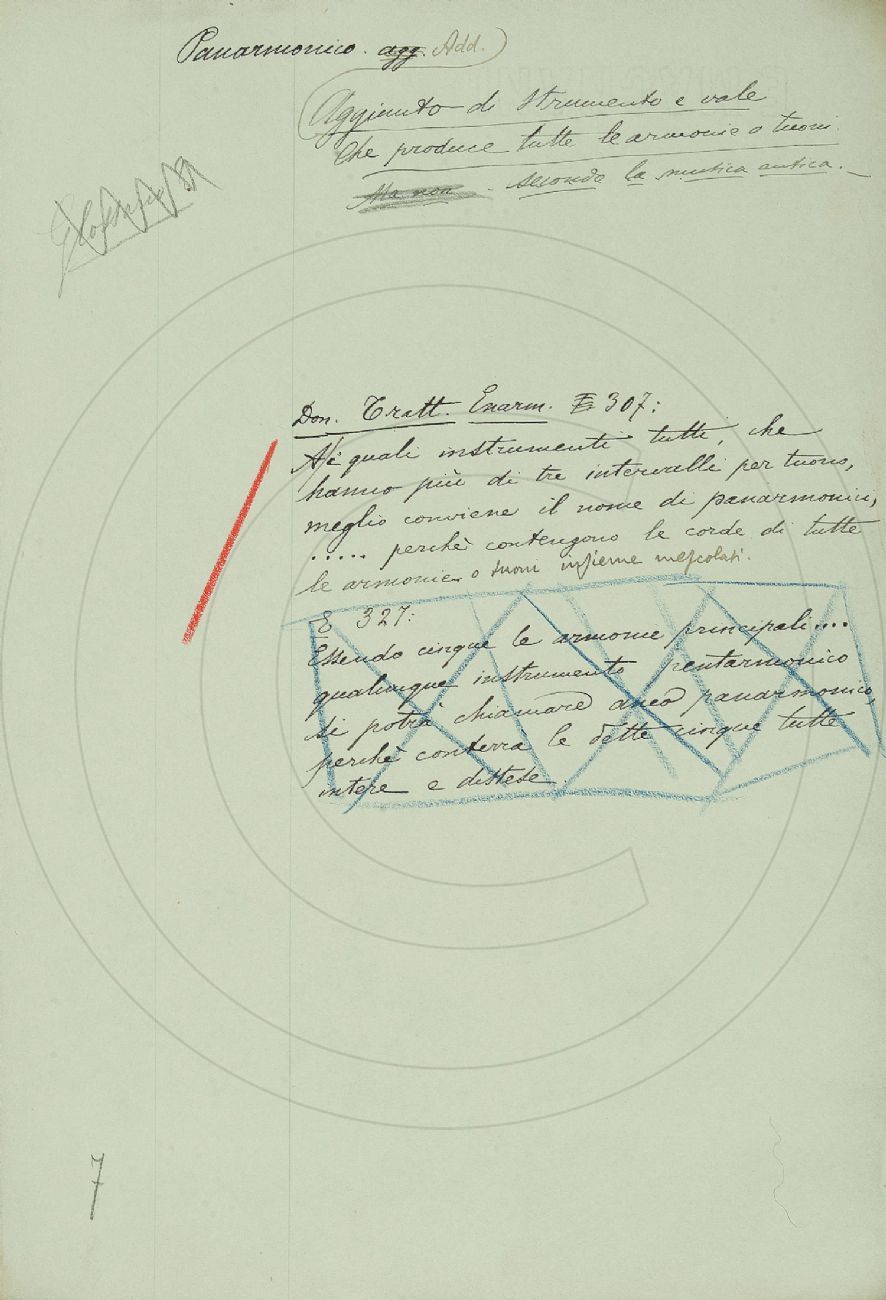 Panarmonico. agg. Add.
Aggiunto di strumento e vale
che produce tutte le armonie o tuoni
Ma non secondo la musica antica.
Don. Tratt. Enarm. 307:
Ai quali instrumenti tutti, che
hanno più di tre intervalli per tuono,
meglio conviene il nome di panarmonici,
..... perchè contengono le corde di tutte
le armonie o tuoni insieme mescolati.
E 327:
Essendo cinque le armonie principali....
qualunque instrumento pentarmonico
si potrà chiamare anco panarmonico,
perchè conterrà le dette cinque tutte
intere e distese.
7